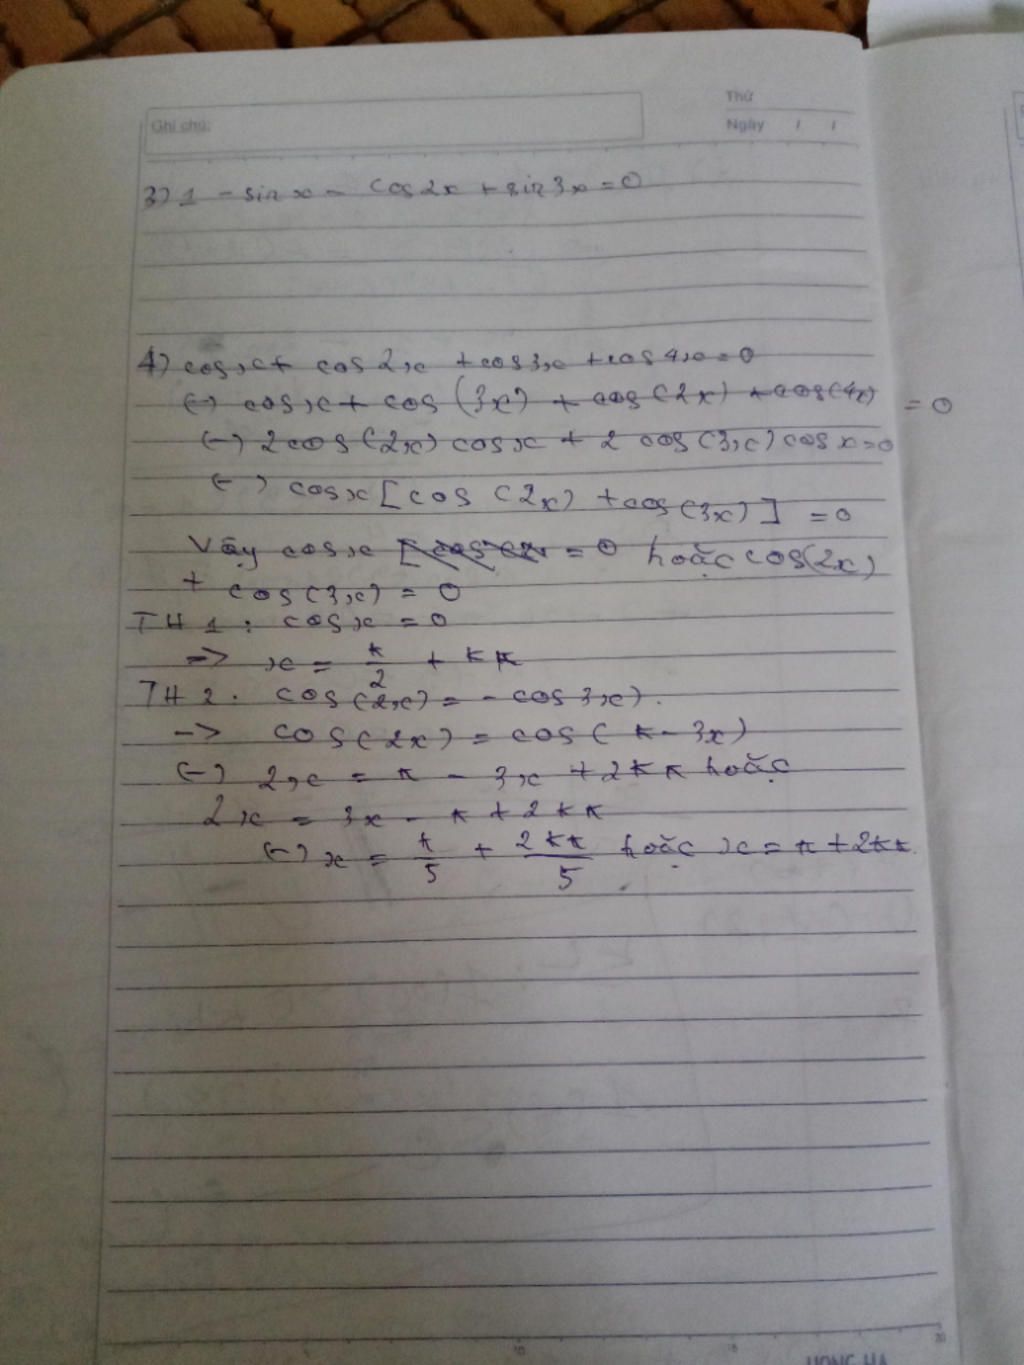 Thứ
Ghi chú:
Ngày / /
3) 1 - sin x - cos 2x + sin 3x = 0
4) cos x + cos 2x + cos 3x + cos 4x = 0
(-) cos x + cos (3x) + cos (2x) + cos (4x) = 0
(-) 2 cos (2x) cos x + 2 cos (3x) cos x = 0
(-) cos x [cos (2x) + cos (3x)] = 0
Vậy cos x = 0 hoặc cos(2x)
+ cos (3x) = 0
TH1: cos x = 0
=> x = π/2 + kπ
TH2: cos (2x) = - cos 3x).
-> cos (2x) = cos (π - 3x)
(-) 2x = π - 3x + 2kπ hoặc
2x = 3x - π + 2kπ
(-) x = π/5 + 2kπ/5 hoặc x = π + 2kπ.
10 15 20
HONG HA